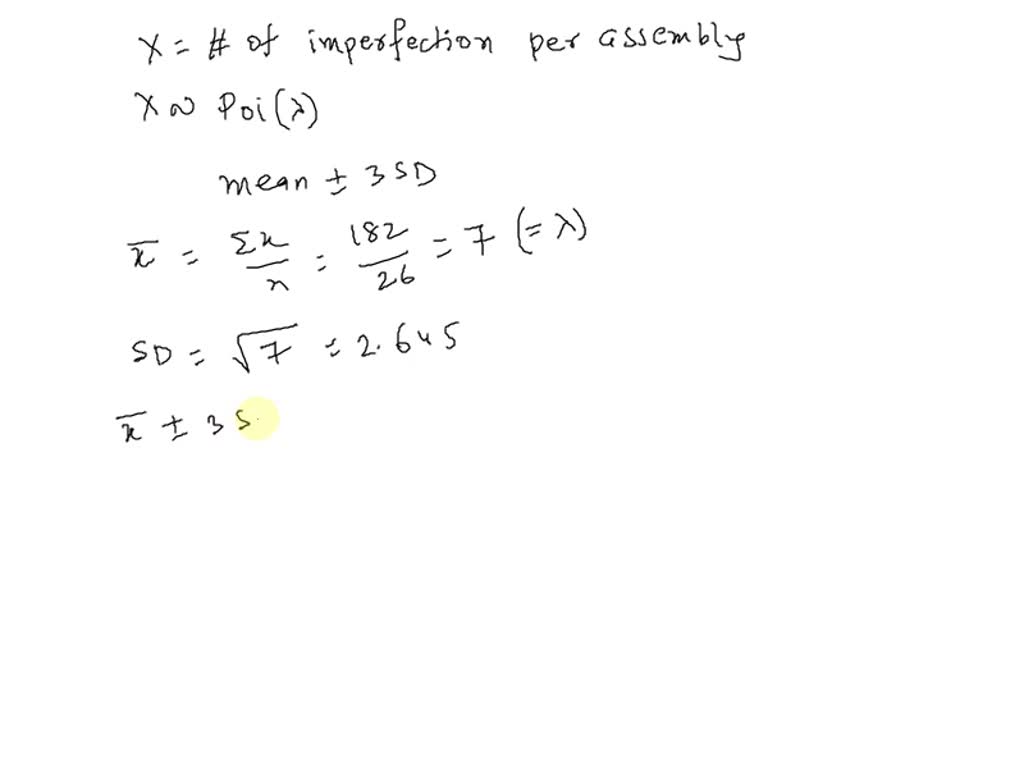 X = # of imperfection per assembly
X ~ Poi(λ)
mean ± 3 SD
x̄ = Σx/n = 182/26 = 7 (= λ)
SD = √7 = 2.645
x̄ ± 3 S